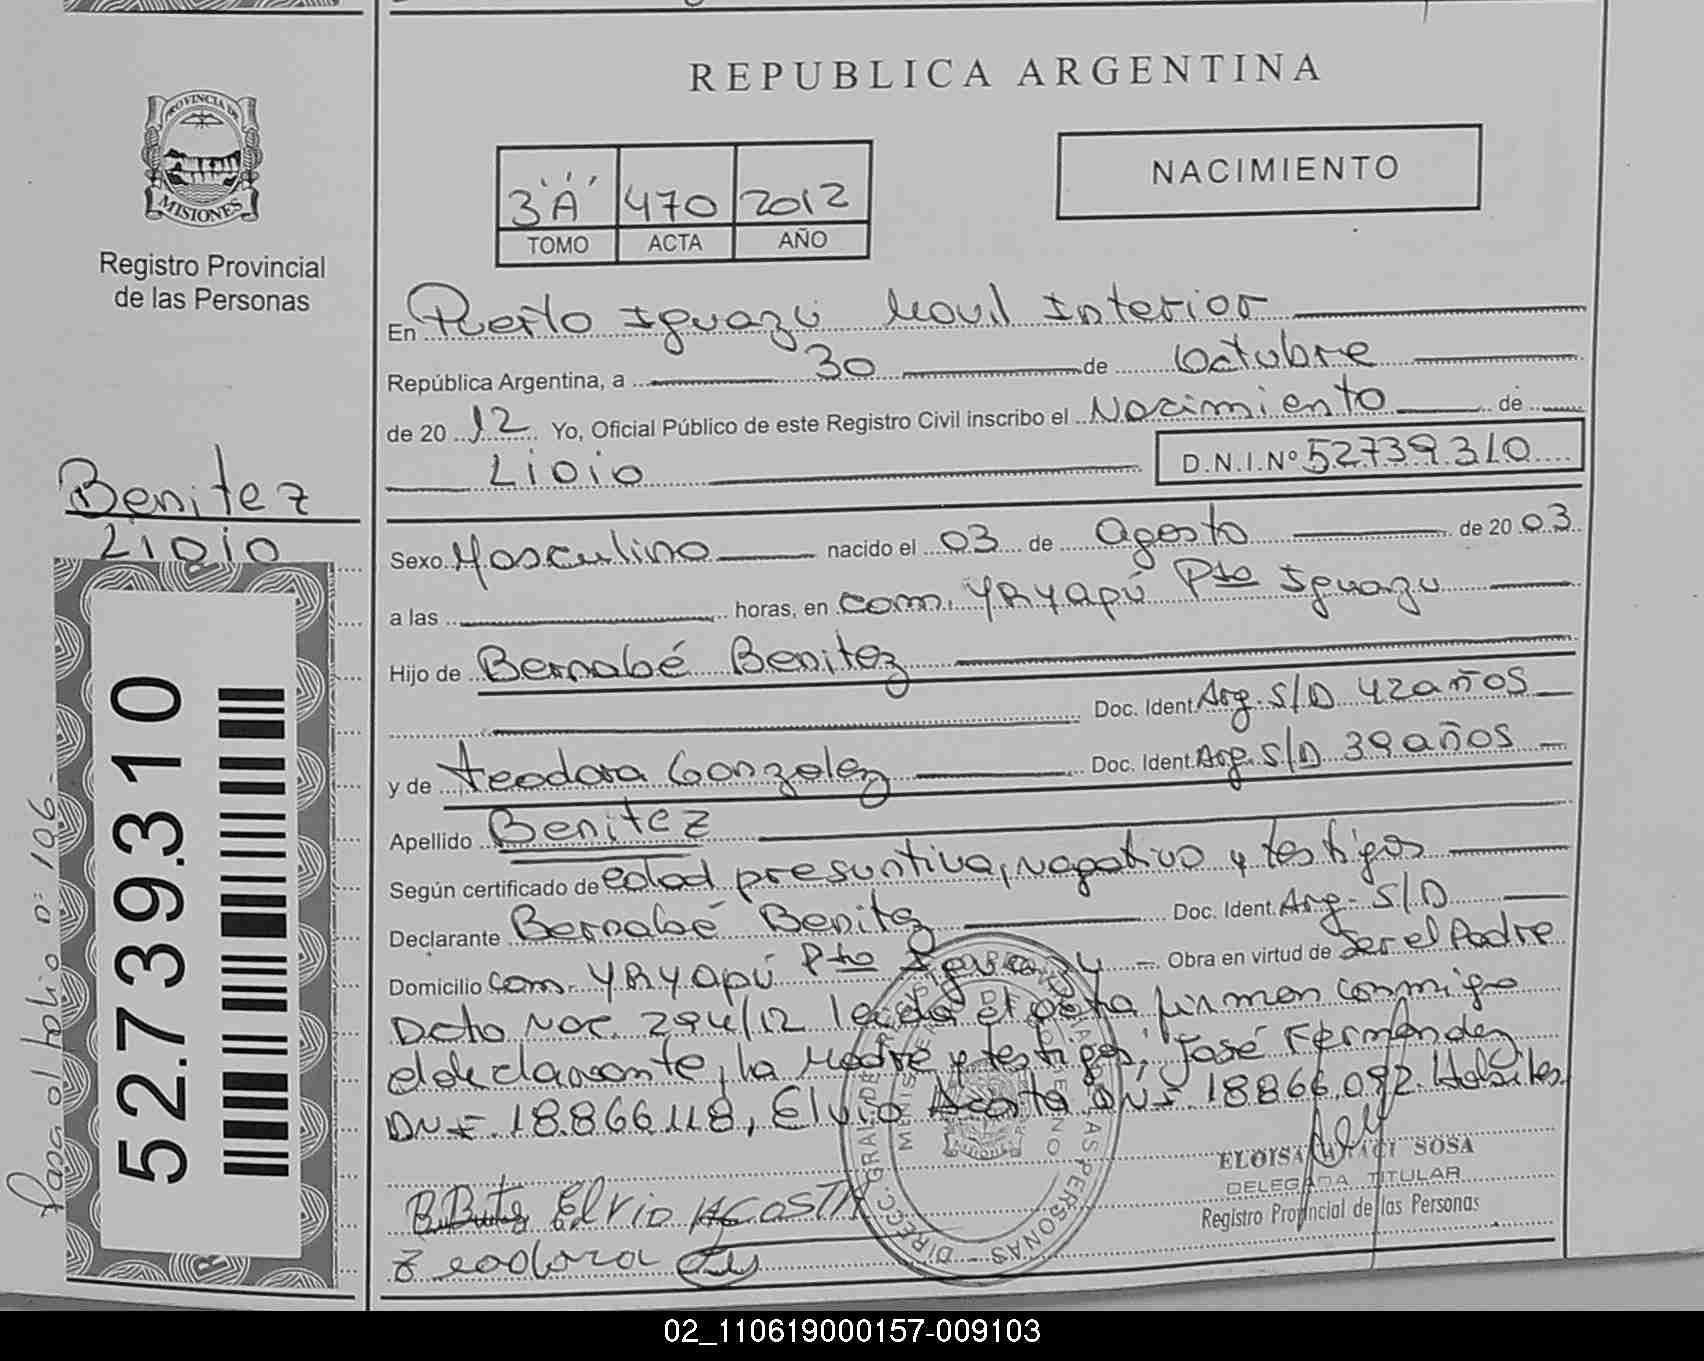 REPUBLICA ARGENTINA
NACIMIENTO
3 "A" 470 2012
TOMO ACTA AÑO
PROVINCIA DE
MISIONES
Registro Provincial
de las Personas
En Puerto Iguazú Movil Interior
República Argentina, a 30 de Octubre
de 20 12 Yo, Oficial Público de este Registro Civil inscribo el Nacimiento de
Lidio D.N.I.Nº 52739310
Benitez
Lidio
Sexo Masculino nacido el 03 de Agosto de 20 03
a las horas, en com. YRYapú Pto Iguazu
Hijo de Bernabé Benitez
Doc. Ident. Arg. S/D 42 años
y de Teodora Gonzalez Doc. Ident. Arg. S/D 39 años
Apellido Benitez
Según certificado de edad presuntiva, negativo y testigos
Declarante Bernabé Benitez Doc. Ident. Arg. S/D
Domicilio com. YRYapú Pto Iguazu Obra en virtud de Ser el Padre
Dcto Nac. 294/12 leida el acta firman conmigo
el declarante, la Madre y testigos, José Fernández
DNI 18.866.118, Elvio Acosta DNI 18866.092. Habiles
Elvio Acosta
Teodora
ELOISA ARACI SOSA
DELEGADA TITULAR
Registro Provincial de las Personas
52.739.310
Pasa al folio nº 106
02_110619000157-009103